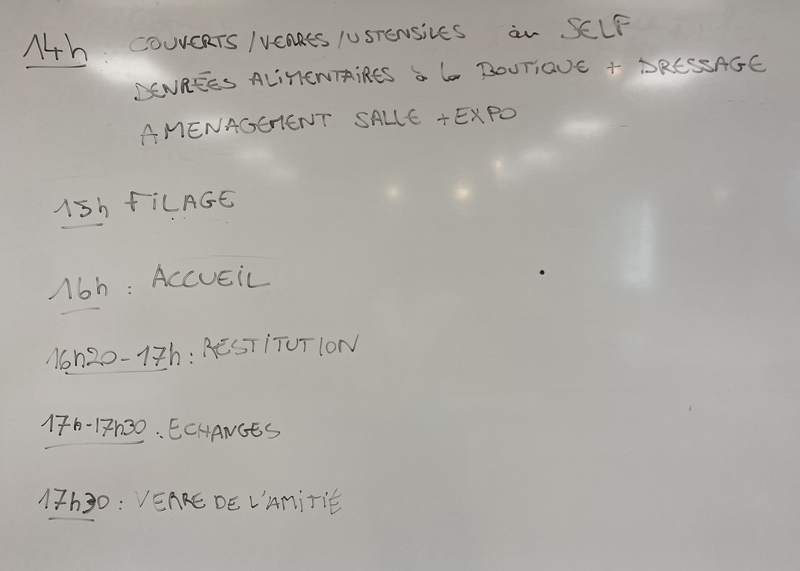 14h : COUVERTS / VERRES / USTENSILES au SELF
DENRÉES ALIMENTAIRES à la BOUTIQUE + DRESSAGE
AMENAGEMENT SALLE + EXPO
15h FILAGE
16h : ACCUEIL
16h20 - 17h : RESTITUTION
17h - 17h30 : ECHANGES
17h30 : VERRE DE L'AMITIÉ